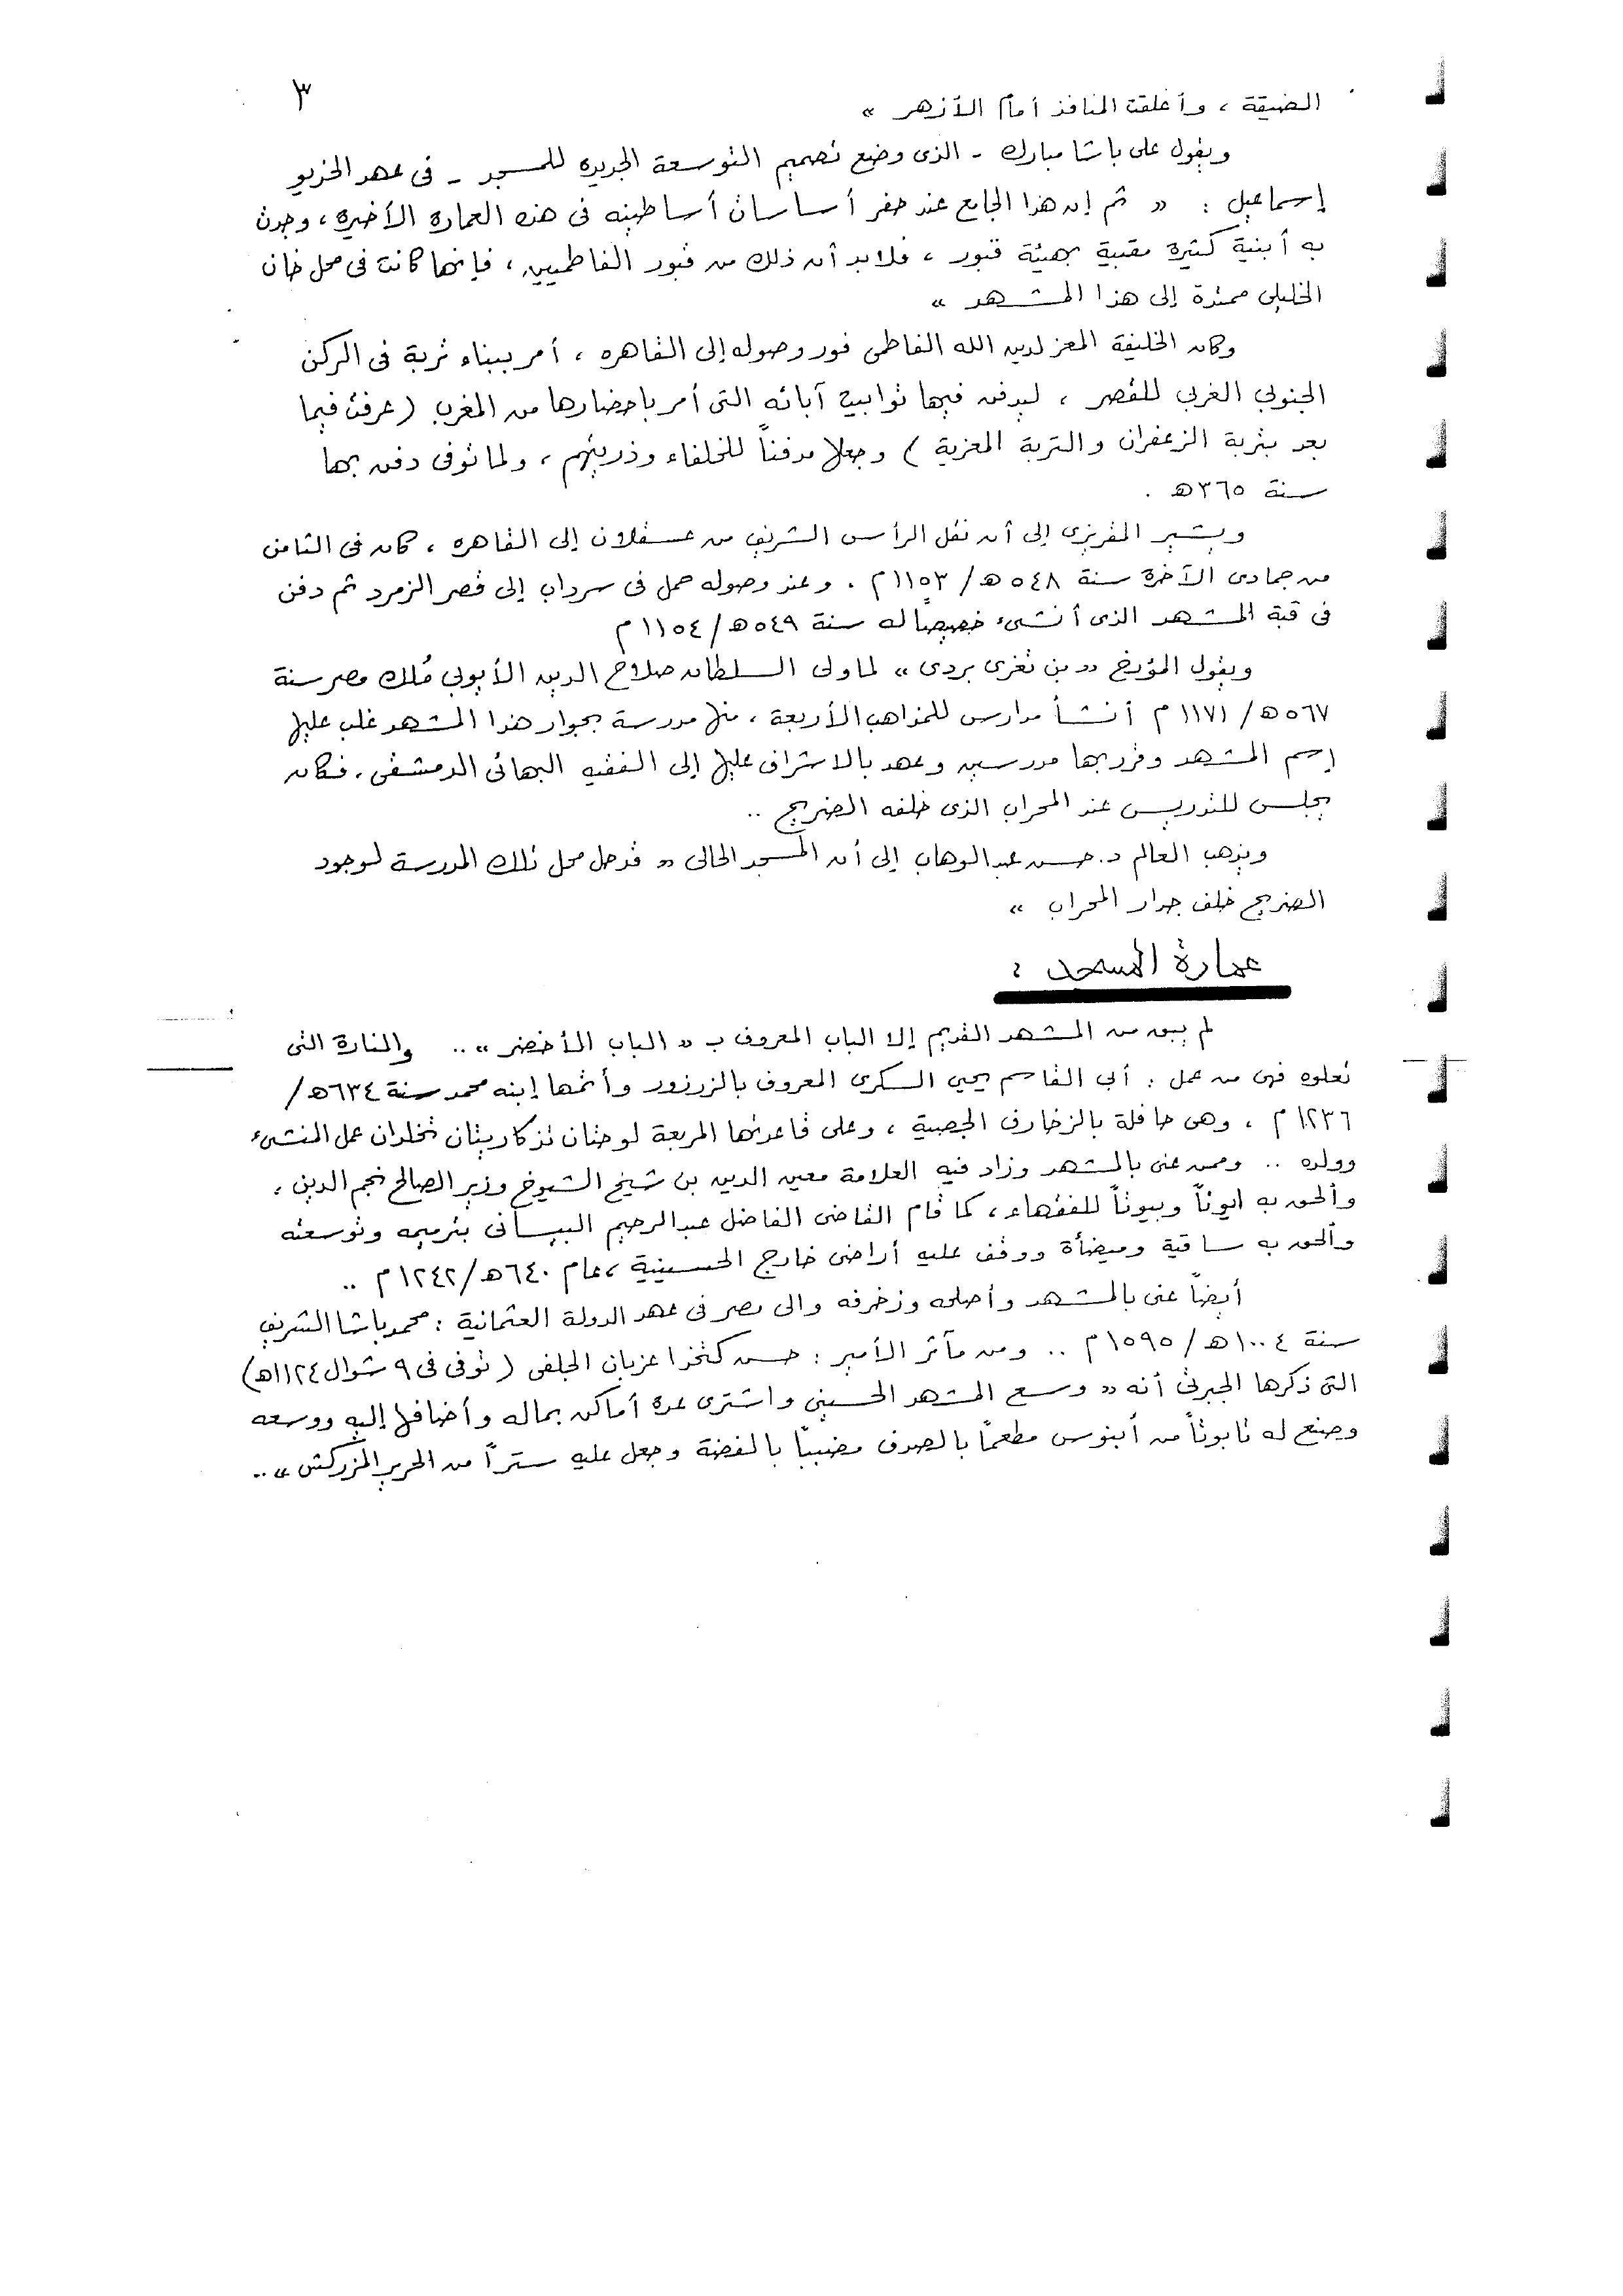 ٣
الضيقة ، وأغلقت المنافذ أمام الأزهر »
ويقول على باشا مبارك - الذى وضع تصميم التوسعة الجديدة للمسجد - فى عهد الخديو
إسماعيل : « ثم إن هذا الجامع عند حفر أساسات أساطينه فى هذه العمارة الأخيرة ، وجدت
به أبنية كثيرة مقبية بهيئة قبور ، فلابد أن ذلك من قبور الفاطميين ، فإنها كانت فى محل خان
الخليلى ممتدة إلى هذا المشهد »
وكان الخليفة المعز لدين الله الفاطمى فور وصوله إلى القاهره ، أمر ببناء تربة فى الركن
الجنوبي الغربي للقصر ، ليدفن فيها توابيت آبائه التى أمر باحضارها من المغرب ( عرفت فيما
بعد بتربة الزعفران والتربة المعزية ) وجعلها مدفناً للخلفاء وذريتهم ، ولما توفى دفن بها
سنة ٣٦٥ هـ .
ويشير المقريزى إلى أن نقل الرأس الشريف من عسقلان إلى القاهره ، كان فى الثامن
من جمادى الآخرة سنة ٥٤٨ هـ / ١١٥٣ م . وعند وصوله حمل فى سرداب إلى قصر الزمرد ثم دفن
فى قبة المشهد الذى أنشىء خصيصاً له سنة ٥٤٩ هـ / ١١٥٤ م
ويقول المؤرخ « بن تغرى بردى » لما ولى السلطان صلاح الدين الأيوبي مُلك مصر سنة
٥٦٧ هـ / ١١٧١ م أنشأ مدارس للمذاهب الأربعة ، منها مدرسة بجوار هذا المشهد غلب عليها
إسم المشهد وقرر بها مدرسين وعهد بالاشراف عليها إلى الفقيه البهائى الدمشقى . فكان
يجلس للتدريس عند المحراب الذى خلفه الضريح ..
ويذهب العالم د. حسن عبد الوهاب إلى أن المسجد الحالى « قد حل محل تلك المدرسة لوجود
الضريح خلف جدار المحراب »
عمارة المسجد :
لم يبق من المشهد القديم إلا الباب المعروف بـ « الباب الأخضر » .. والمنارة التى
تعلوه فهى من عمل : أبي القاسم يحيي السكرى المعروف بالزرزور وأتمها إبنه محمد سنة ٦٣٤ هـ /
١٢٣٦ م ، وهى حافلة بالزخارف الجصية ، وعلى قاعدتها المربعة لوحتان تذكاريتان تخلدان عمل المنشىء
وولده .. وممن عنى بالمشهد وزاد فيه العلامة معين الدين بن شيخ الشيوخ وزير الصالح نجم الدين ،
وألحق به ايوناً وبيوتاً للفقهاء ، كما قام القاضى الفاضل عبد الرحيم البيسانى بترميمه وتوسعته
وألحق به ساقية وميضأة ووقف عليه أراضى خارج الحسينية ، عام ٦٤٠ هـ / ١٢٤٢ م ..
أيضاً عنى بالمشهد وأصلحه وزخرفه والى مصر فى عهد الدولة العثمانية : محمد باشا الشريف
سنة ١٠٠٤ هـ / ١٥٩٥ م .. ومن مآثر الأمير : حسن كتخدا عزبان الجلفى ( توفى فى ٩ شوال ١١٢٤ هـ )
التى ذكرها الجبرتى أنه « وسع المشهد الحسيني واشترى عدة أماكن بماله وأضافها إليه ووسعه
وصنع له تابوتاً من أبنوس مطعماً بالصدف مضبباً بالفضة وجعل عليه ستراً من الحرير المزركش » ..